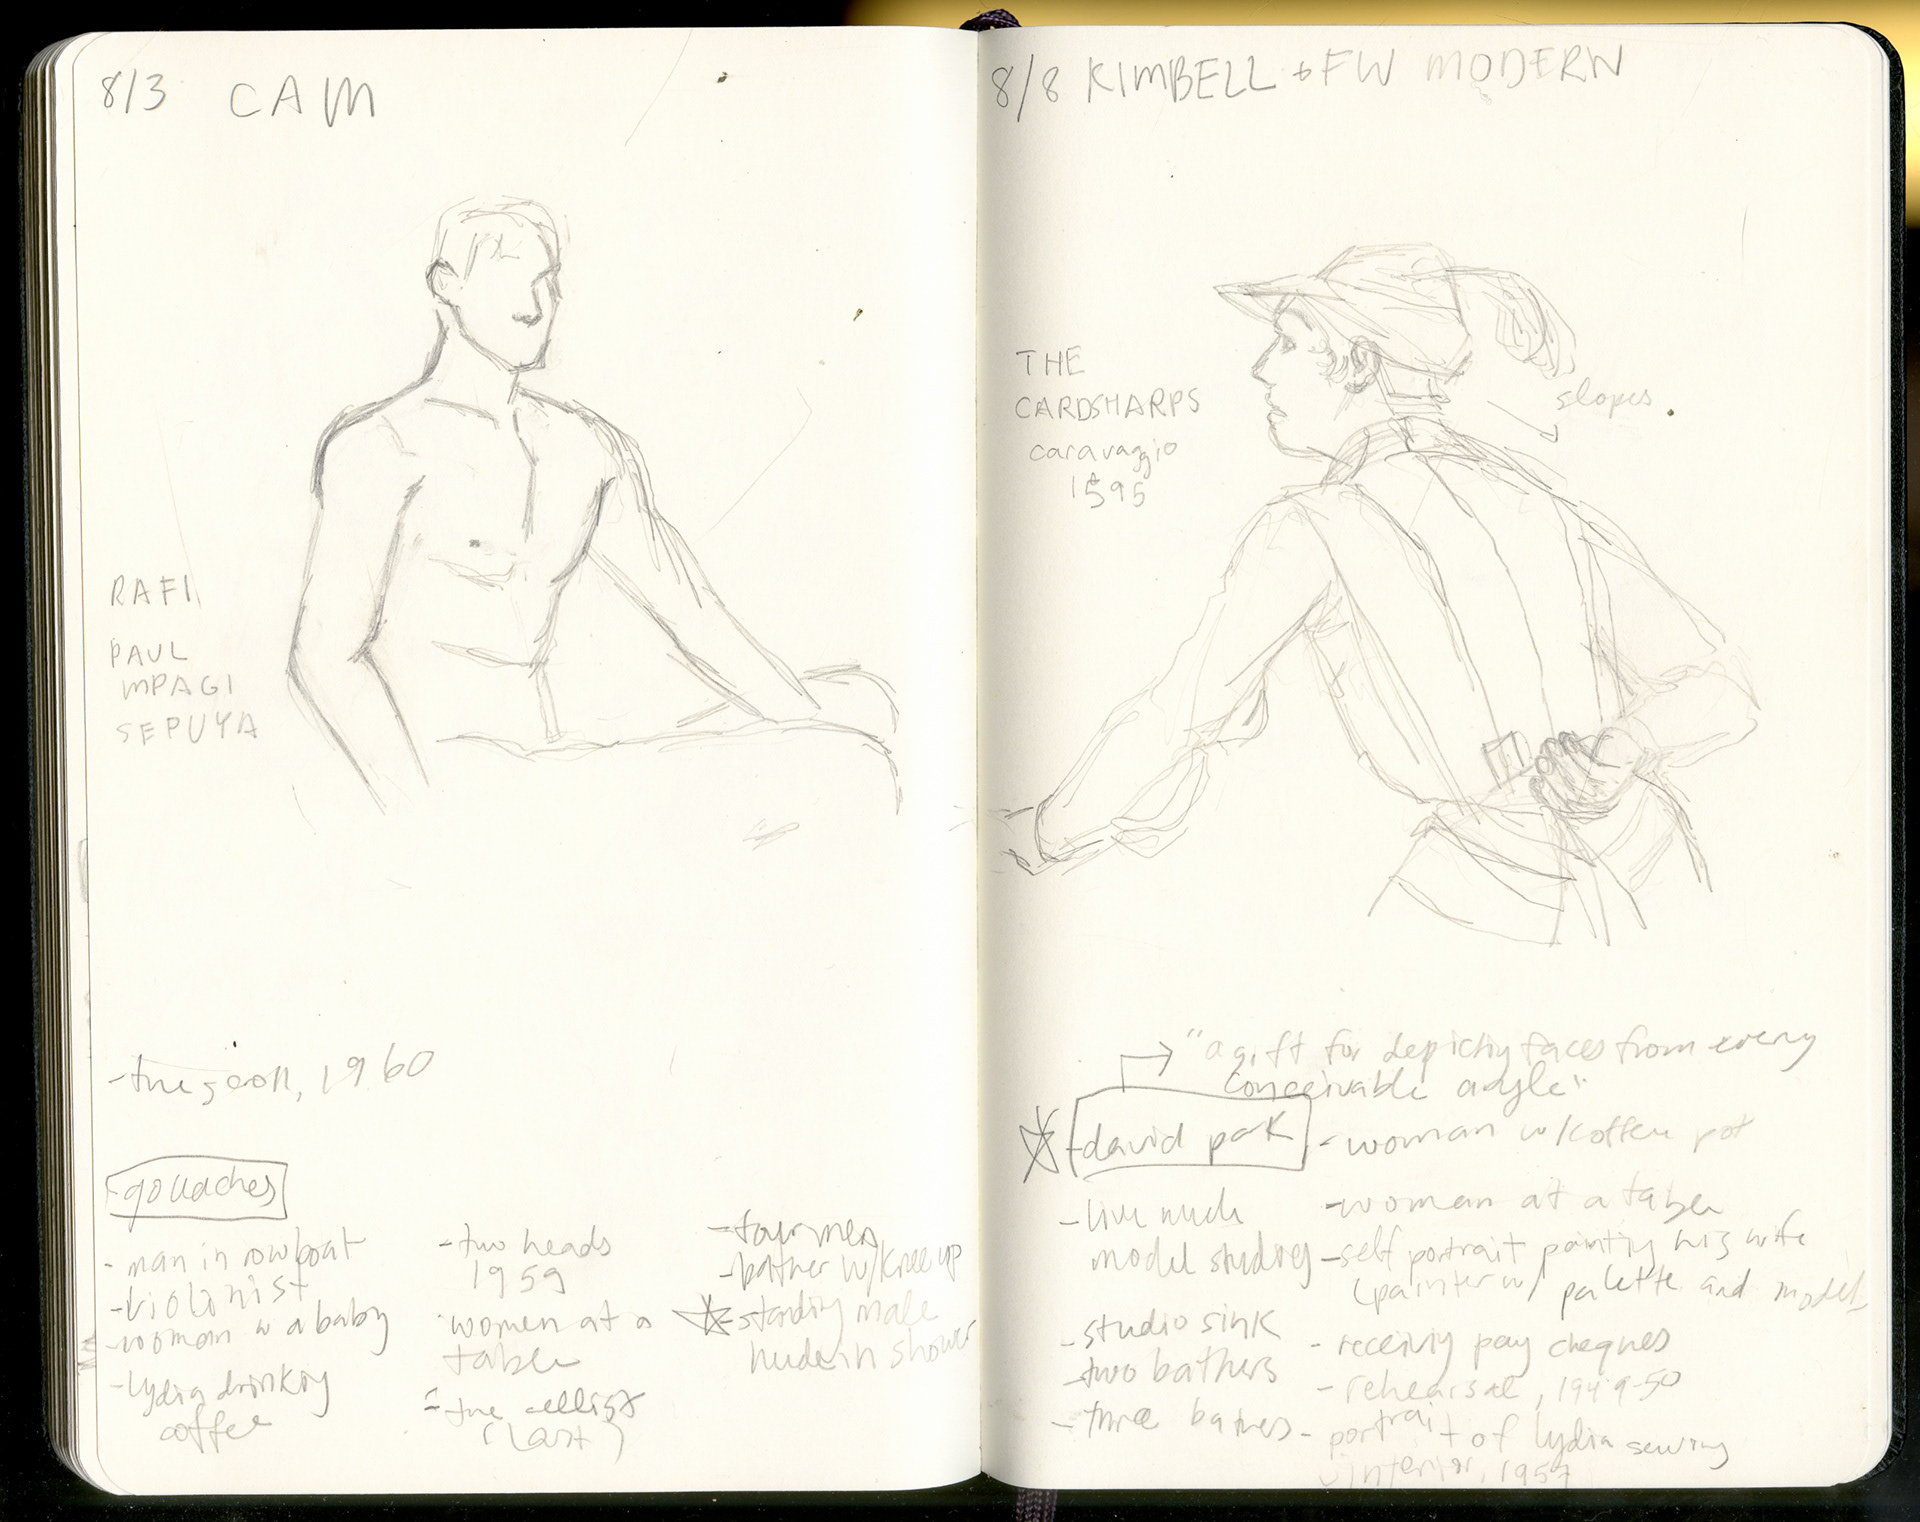 8/3 CAM
RAFI
PAUL
MPAGI
SEPUYA
- the scroll, 1960
- gouaches
- man in rowboat
- violinist
- woman w a baby
- lydia drinking
coffee
- two heads
1959
women at a
table
- the cellist
(last)
- four men
- bather w/ knee up
- standing male
nude in shower
8/8 KIMBELL + FW MODERN
THE
CARDSHARPS
caravaggio
1595
slopes
"a gift for depicting faces from every
conceivable angle"
- david park
- live nude
model studies
- studio sink
- two bathers
- three bathers
- woman w/ coffee pot
- woman at a table
- self portrait painting his wife
(painter w/ palette and model)
- receiving pay cheques
- rehearsal, 1949-50
- portrait of lydia sewing
- interior, 1957